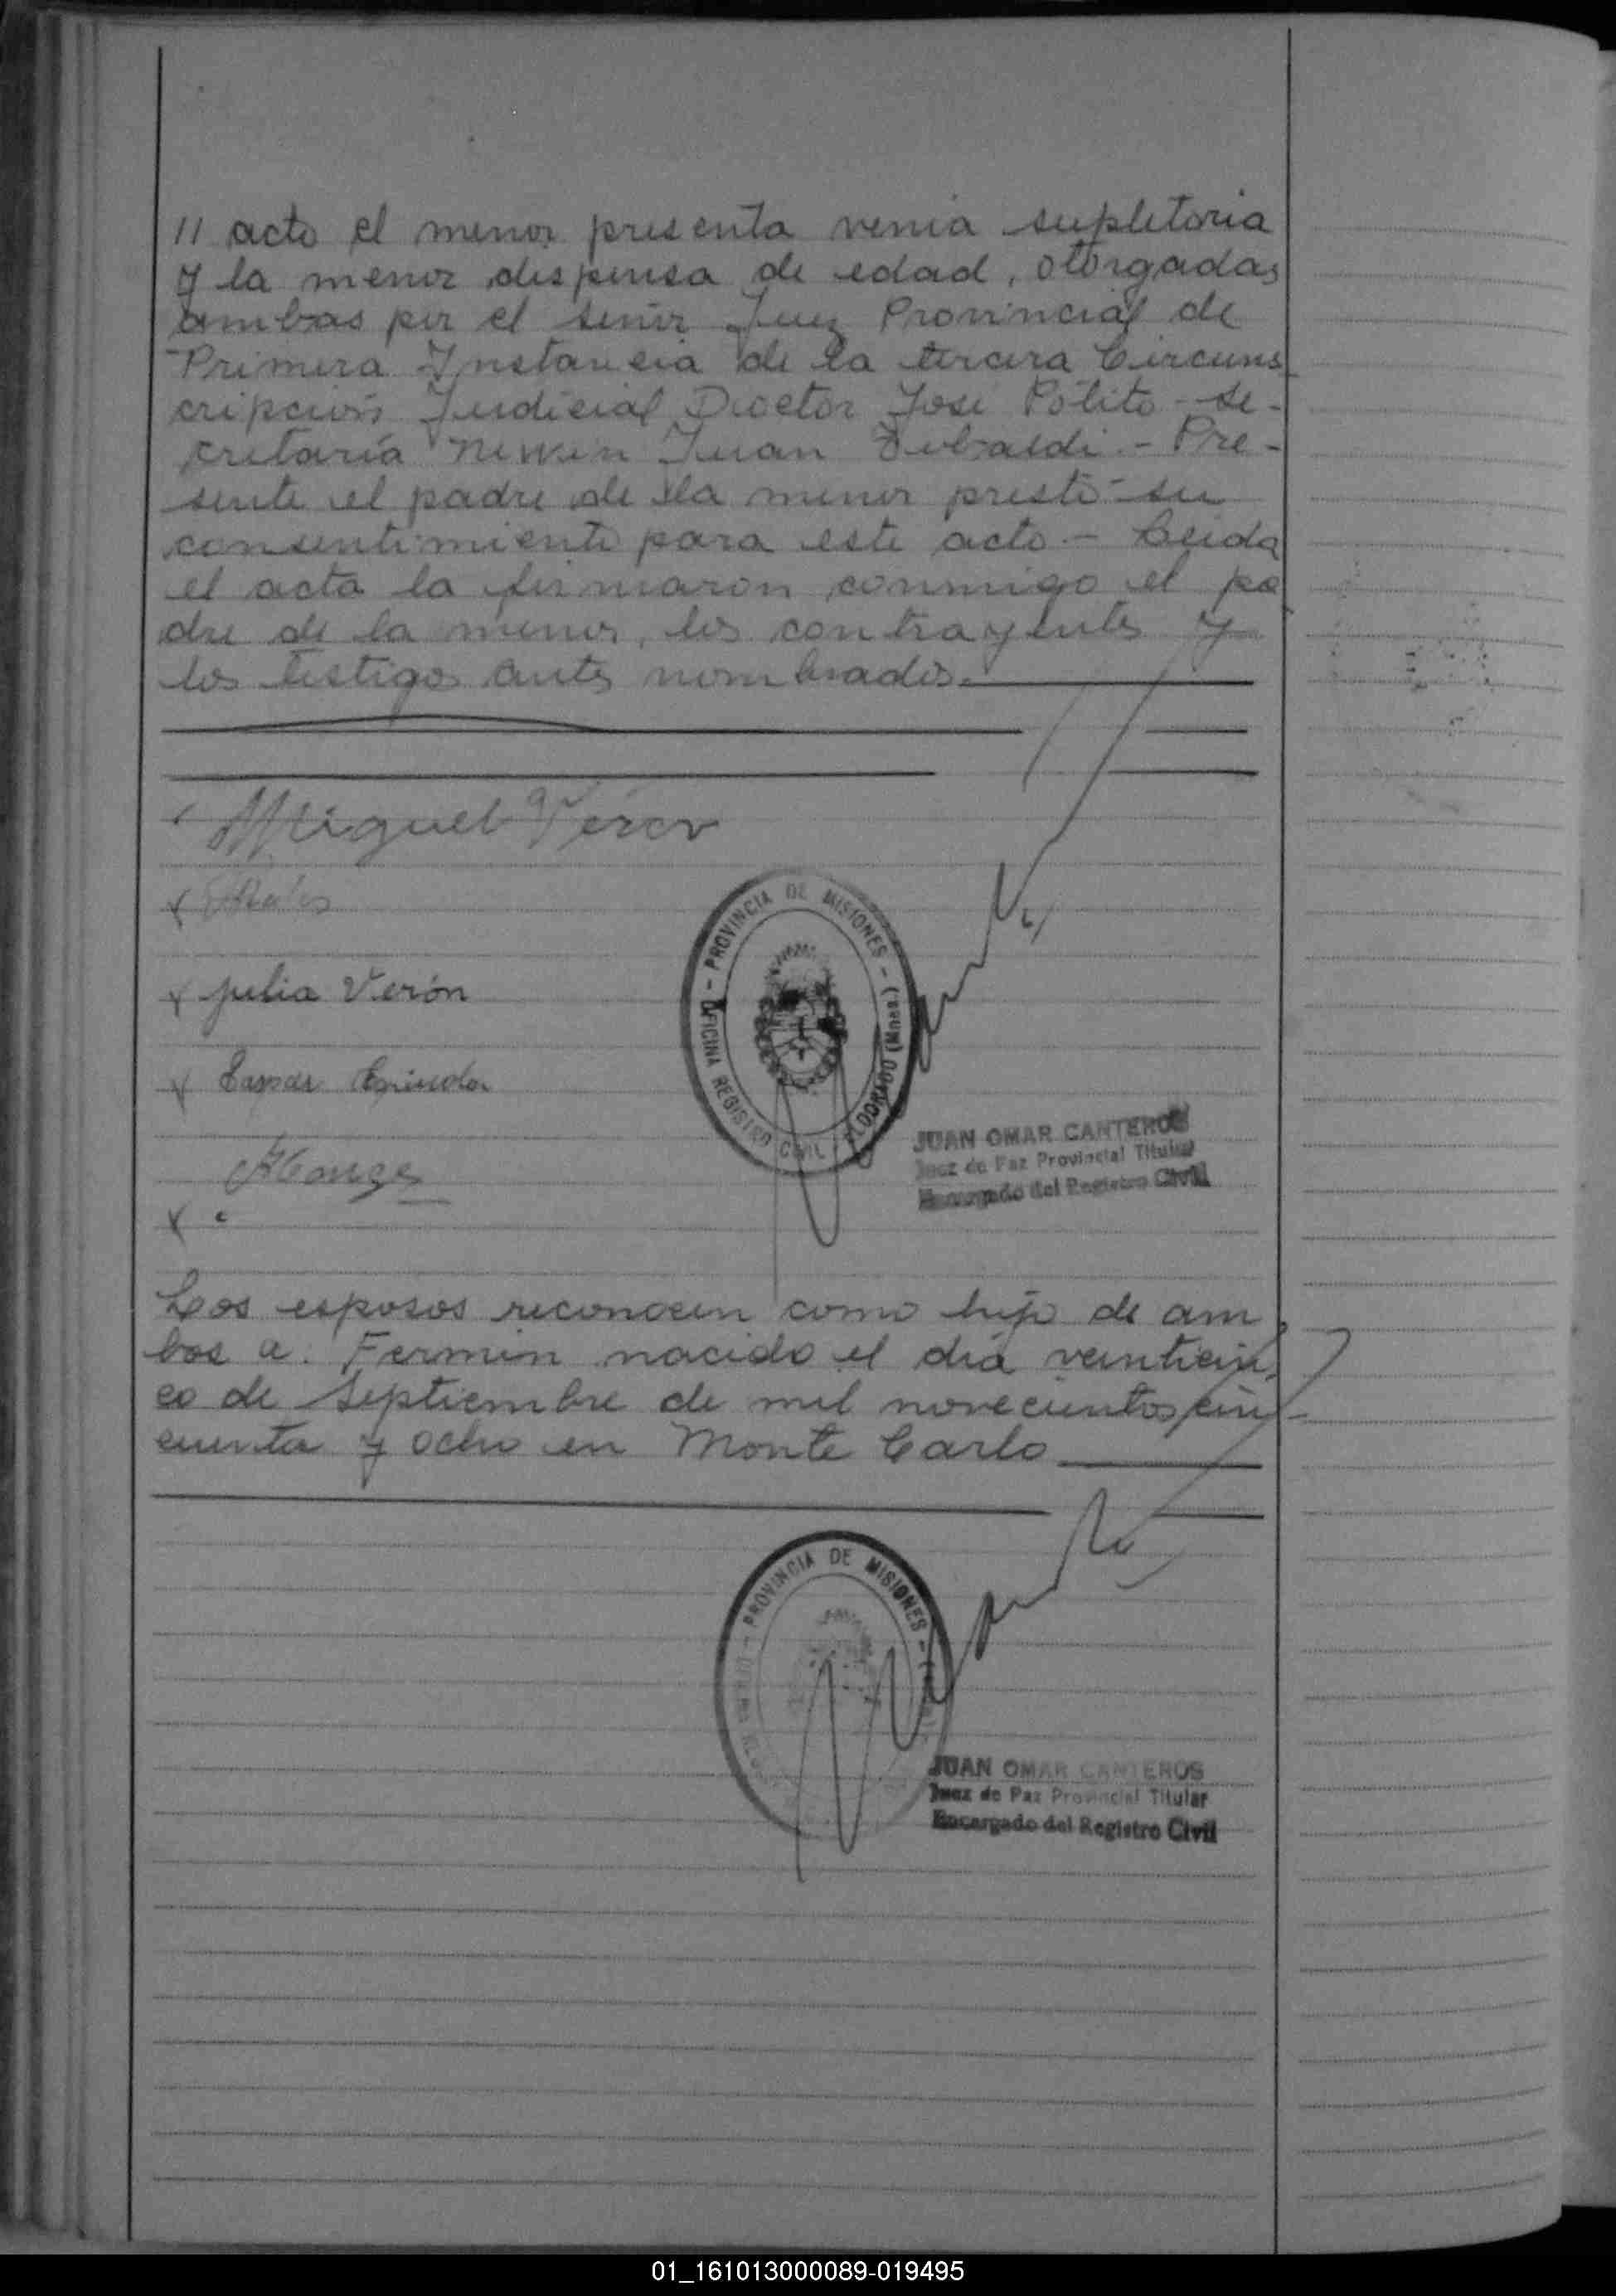 11 acto el menor presenta venia supletoria
y la menor dispensa de edad, otorgadas
ambas por el señor Juez Provincial de
Primera Instancia de la tercera Circuns
cripción Judicial Doctor José Pólito - Se-
cretaría Juan - Pre-
sente el padre de la menor prestó su
consentimiento para este acto - Leida
el acta la firmaron conmigo el pa
dre de la menor, los contrayentes y
los testigos antes nombrados.
Miguel
Julia Verón
Gaspar Espindola
- PROVINCIA DE MISIONES -
OFICINA REGISTRO CIVIL ELDORADO (Mnes.)
JUAN OMAR CANTEROS
Juez de Paz Provincial Titular
Encargado del Registro Civil
Los esposos reconocen como hijo de am
bos a: Fermin nacido el día veinticin
co de Septiembre de mil novecientos cin-
cuenta y ocho en Monte Carlo
- PROVINCIA DE MISIONES -
JUAN OMAR CANTEROS
Juez de Paz Provincial Titular
Encargado del Registro Civil
01_161013000089-019495